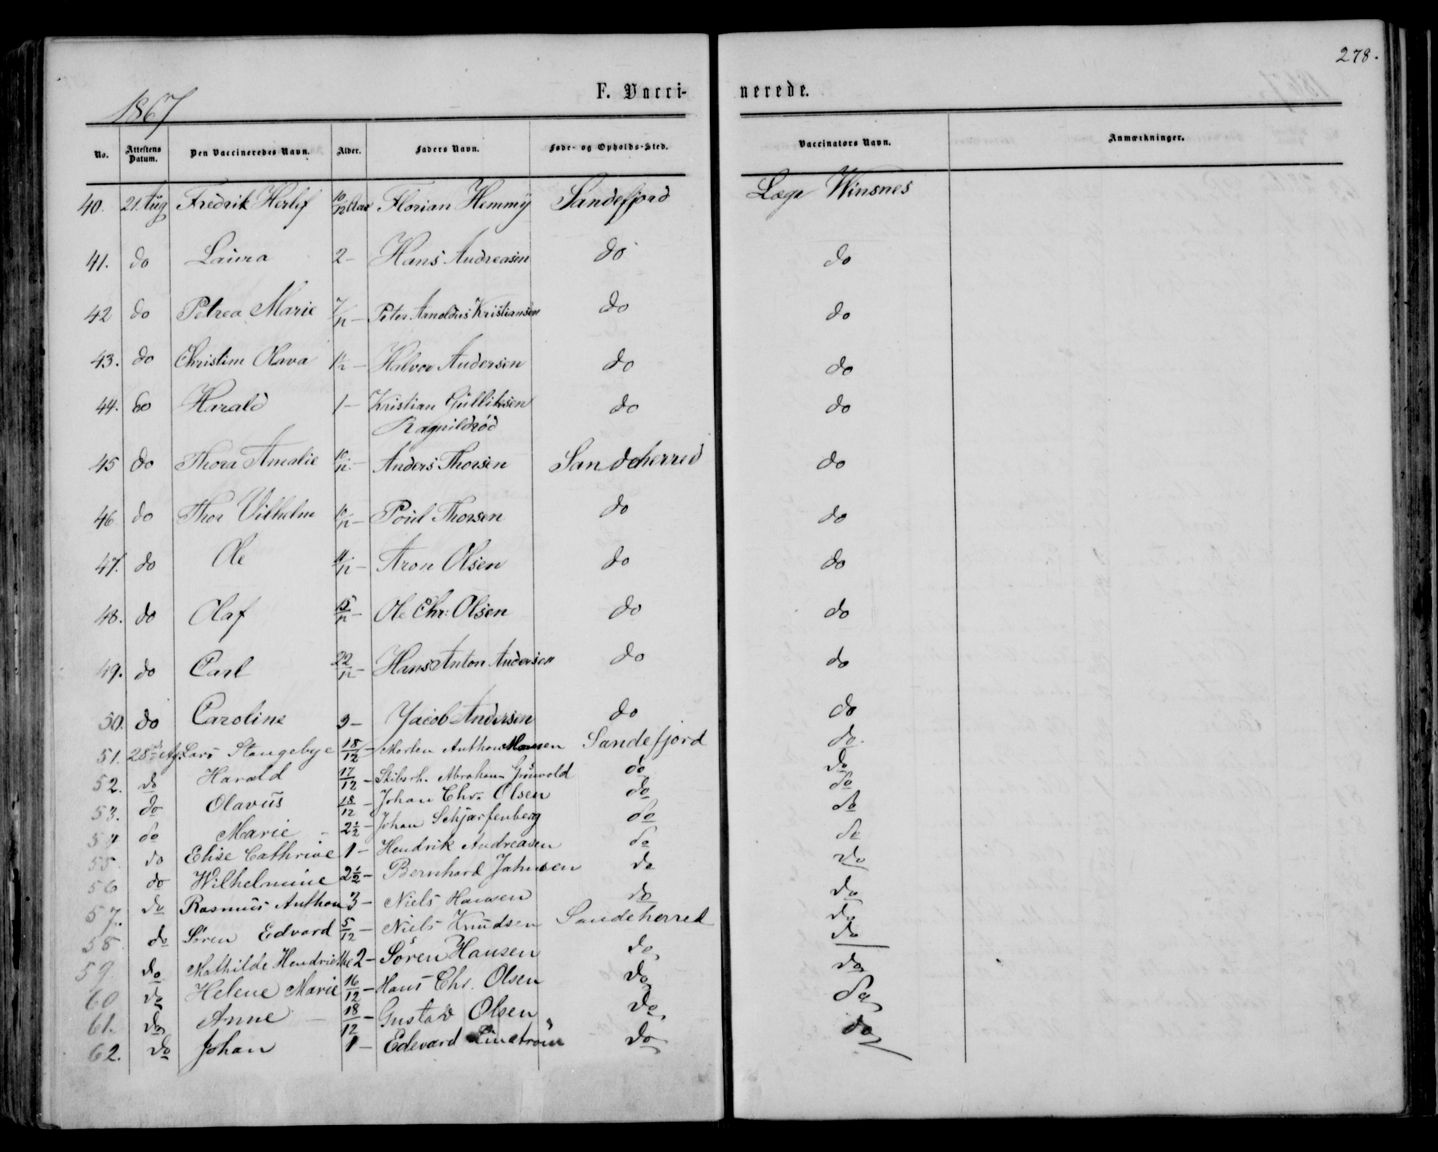 278.
1867
F. Vacci- nerede.
No. Attestens Datum. Den Vaccineredes Navn. Alder. Faders Navn. Føde- og Opholds-Sted. Vaccinators Navn. Anmærkninger.
40. 21. Aug Fredrik Herlof 10/12 Florian Hemmy Sandefjord Læge Winsnes
41. do Laura 2 – Hans Andreasen do do
42 do Petrea Marie 7/12 – Peter Arnoldus Kristiansen do do
43. do Christine Olava 1½ – Halvor Andersen do do
44. do Harald 1 – Kristian Gulliksen do do
Ragnildrød
45 do Thora Amalie 10/12 – Anders Thorsen Sandeherred do
46 do Thor Vilhelm 10/12 – Poul Thorsen do do
47. do Ole 11/12 – Aron Olsen do do
48. do Olaf 15/12 – Ole Chr. Olsen do do
49. do Carl 22/12 – Hans Anton Andersen do do
50. do Caroline 9 – Jacob Andersen do do
51. 28 Aug Lars Stangebye 18/12 – Morten Anthon Hansen Sandefjord do.
52. do Harald 17/12 – Skibsrh. Abraham Grønvold do do
53. do Olavus 18/12 – Johan Chr. Olsen do do
54 do Marie – 2½ – Johan Schjarfenberg do do
55. do Elise Cathrine 1 – Hendrik Andreasen do do
56 do Wilhelmine 2½ – Bernhard Jahnsen do do
57. do Rasmus Anthon 3 – Niels Hansen do do
58. do Søren Edvard 5/12 – Niels Knudsen Sandeherred do
59. do Mathilde Hendrikke 2 – Søren Hansen do do
60 do Helene Marie 16/12 – Hans Chr. Olsen do do
61. do Anne – 18/12 – Gustav Olsen do do
62. do Johan 1 – Edevard Linstrøm do do